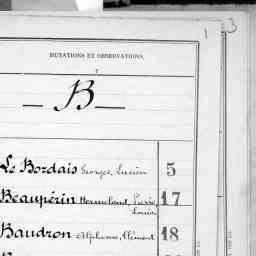 1 3
MUTATIONS ET OBSERVATIONS.
— B —
Le Bordais Georges, Lucien 5
Beaupérin Hermeland, Pierre, 17
Louis
Baudron Alphonse, Clément 18